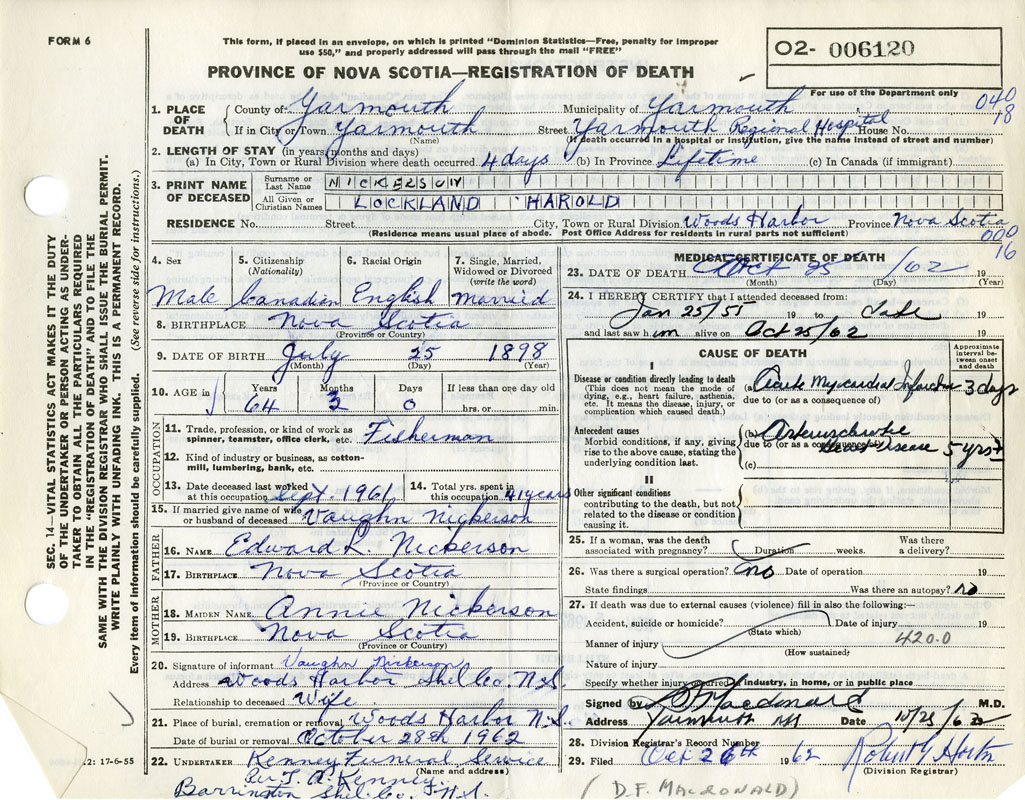 FORM 6
This form, if placed in an envelope, on which is printed "Dominion Statistics—Free, penalty for improper
use $50," and properly addressed will pass through the mail "FREE"
PROVINCE OF NOVA SCOTIA—REGISTRATION OF DEATH
02- 006120
For use of the Department only
040
18
1. PLACE OF DEATH { County of Yarmouth Municipality of Yarmouth
If in City or Town Yarmouth Street Yarmouth Regional Hospital House No.
(Name) (If death occurred in a hospital or institution, give the name instead of street and number)
2. LENGTH OF STAY (in years, months and days)
(a) In City, Town or Rural Division where death occurred 4 days (b) In Province Lifetime (c) In Canada (if immigrant)
3. PRINT NAME OF DECEASED
Surname or Last Name NICKERSON
All Given or Christian Names LOCKLAND HAROLD
RESIDENCE No. Street City, Town or Rural Division Woods Harbor Province Nova Scotia
(Residence means usual place of abode. Post Office Address for residents in rural parts not sufficient)
000
16
4. Sex 5. Citizenship (Nationality) 6. Racial Origin 7. Single, Married, Widowed or Divorced (write the word)
Male Canadian English married
8. BIRTHPLACE Nova Scotia
(Province or Country)
9. DATE OF BIRTH July 25 1898
(Month) (Day) (Year)
10. AGE in { Years Months Days If less than one day old
64 3 0 hrs. or min.
OCCUPATION
11. Trade, profession, or kind of work as spinner, teamster, office clerk, etc. Fisherman
12. Kind of industry or business, as cotton-mill, lumbering, bank, etc.
13. Date deceased last worked at this occupation Sept. 1961
14. Total yrs. spent in this occupation 41 years
15. If married give name of wife or husband of deceased Vaughn Nickerson
FATHER
16. NAME Edward L. Nickerson
17. BIRTHPLACE Nova Scotia
(Province or Country)
MOTHER
18. MAIDEN NAME Annie Nickerson
19. BIRTHPLACE Nova Scotia
(Province or Country)
20. Signature of informant Vaughn Nickerson
Address Woods Harbor Shel. Co. N.S.
Relationship to deceased Wife
21. Place of burial, cremation or removal Woods Harbor N.S.
Date of burial or removal October 28th 1962
22. UNDERTAKER Kenney Funeral Service
(Name and address)
Per J. A. Kenney
Barrington Shel. Co. N.S.
MEDICAL CERTIFICATE OF DEATH
23. DATE OF DEATH Oct 25 /62 19
(Month) (Day) (Year)
24. I HEREBY CERTIFY that I attended deceased from:
Jan 25/55 19 to Date 19
and last saw him alive on Oct 25/62 19
CAUSE OF DEATH
Approximate interval between onset and death
I
Disease or condition directly leading to death
(This does not mean the mode of dying, e.g., heart failure, asthenia, etc. It means the disease, injury, or complication which caused death.)
(a) Acute Myocardial Infarction 3 days
due to (or as a consequence of)
Antecedent causes
Morbid conditions, if any, giving rise to the above cause, stating the underlying condition last.
(b) Arteriosclerotic
due to (or as a consequence of) Heart Disease 5 yrs+
(c)
II
Other significant conditions
contributing to the death, but not related to the disease or condition causing it.
25. If a woman, was the death associated with pregnancy? Duration weeks. Was there a delivery?
26. Was there a surgical operation? no Date of operation 19
State findings Was there an autopsy? no
27. If death was due to external causes (violence) fill in also the following:—
Accident, suicide or homicide? Date of injury 19
(State which)
Manner of injury 420.0
(How sustained)
Nature of injury
Specify whether injury occurred in industry, in home, or in public place
Signed by Macdonald M.D.
Address Yarmouth NS Date 10/25/62
28. Division Registrar's Record Number
29. Filed Oct 26th 1962 Robert G Horton
(Division Registrar)
( D.F. MACDONALD )
SEC. 14—VITAL STATISTICS ACT MAKES IT THE DUTY
OF THE UNDERTAKER OR PERSON ACTING AS UNDER-
TAKER TO OBTAIN ALL THE PARTICULARS REQUIRED
IN THE "REGISTRATION OF DEATH" AND TO FILE THE
SAME WITH THE DIVISION REGISTRAR WHO SHALL ISSUE THE BURIAL PERMIT.
WRITE PLAINLY WITH UNFADING INK. THIS IS A PERMANENT RECORD.
Every item of information should be carefully supplied. (See reverse side for instructions.)
2: 17-6-55